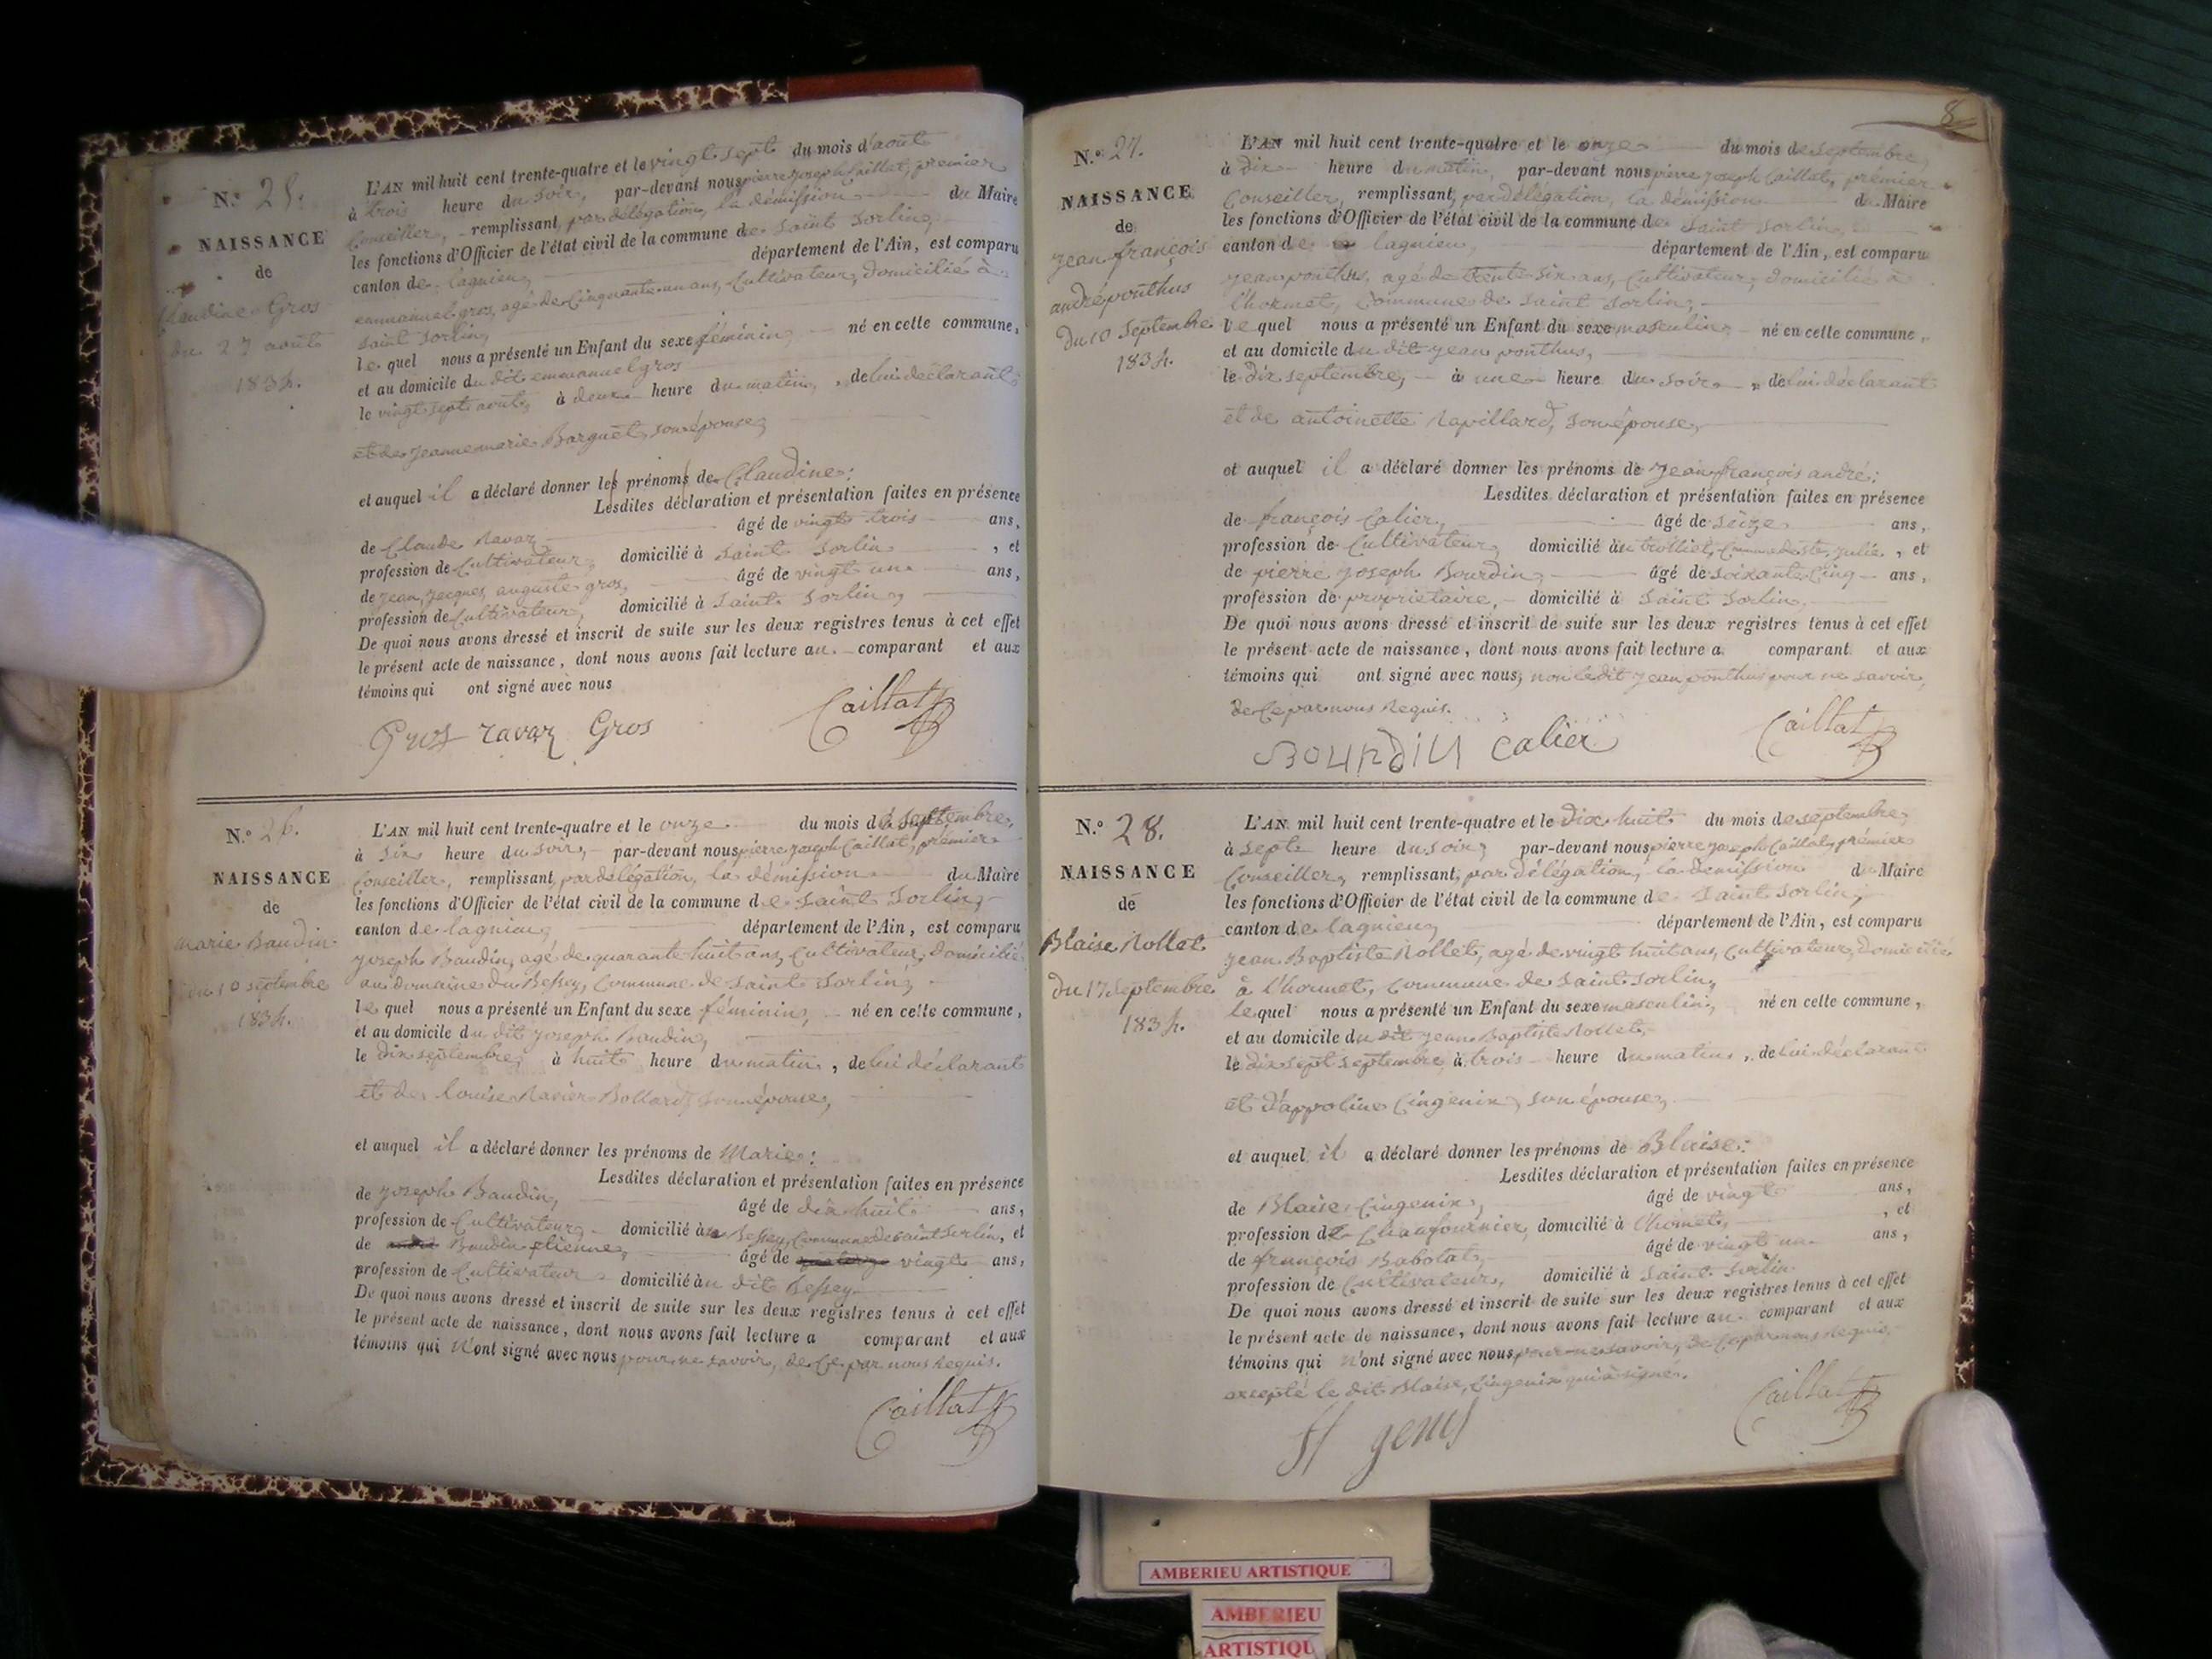 N.º 25.
NAISSANCE
de
Claudine Gros
du 27 août
1834.
L'AN mil huit cent trente-quatre et le vingt sept du mois d'août
à trois heure du soir, par-devant nous pierre joseph Caillat, premier
Conseiller, remplissant, par délégation, la démission du Maire
les fonctions d'Officier de l'état civil de la commune de Saint Sorlin,
canton de lagnieu, département de l'Ain, est comparu
emmanuel gros, agé de Cinquante un ans, Cultivateur, domicilié à
Saint Sorlin,
lequel nous a présenté un Enfant du sexe féminin, né en cette commune,
et au domicile du dit emmanuel gros
le vingt sept août, à deux heure du matin, de lui déclarant
et de jeanne marie Barguet, son épouse,
et auquel il a déclaré donner les prénoms de Claudine:
Lesdites déclaration et présentation faites en présence
de Claude Ravaz âgé de vingt trois ans,
profession de Cultivateur, domicilié à Saint Sorlin, et
de jean jacques auguste gros, âgé de vingt un ans,
profession de Cultivateur, domicilié à Saint Sorlin,
De quoi nous avons dressé et inscrit de suite sur les deux registres tenus à cet effet
le présent acte de naissance, dont nous avons fait lecture au comparant et aux
témoins qui ont signé avec nous
Gros ravaz Gros Caillat
N.º 26.
NAISSANCE
de
marie Baudin
du 10 septembre
1834.
L'AN mil huit cent trente-quatre et le onze du mois de septembre,
à Six heure du soir, par-devant nous pierre joseph Caillat, premier
Conseiller, remplissant, par délégation, la démission du Maire
les fonctions d'Officier de l'état civil de la commune de Saint Sorlin,
canton de lagnieu, département de l'Ain, est comparu
joseph Baudin, agé de quarante huit ans, Cultivateur, domicilié
au domaine du Bessey, Commune de Saint Sorlin,
lequel nous a présenté un Enfant du sexe féminin, né en cette commune,
et au domicile du dit joseph Baudin,
le dix septembre, à huit heure du matin, de lui déclarant
et de louise Ravier Bollard, son épouse,
et auquel il a déclaré donner les prénoms de Marie:
Lesdites déclaration et présentation faites en présence
de joseph Baudin, âgé de dix huit ans,
profession de Cultivateur, domicilié au Bessey, Commune de Saint Sorlin, et
de Baudin etienne, âgé de vingt ans,
profession de Cultivateur domicilié au dit Bessey.
De quoi nous avons dressé et inscrit de suite sur les deux registres tenus à cet effet
le présent acte de naissance, dont nous avons fait lecture a comparant et aux
témoins qui N'ont signé avec nous pour ne savoir, de Ce par nous Requis.
Caillat
8
N.º 27.
NAISSANCE
de
jean françois
andré ponthus
Du 10 Septembre
1834.
L'AN mil huit cent trente-quatre et le onze du mois de Septembre,
à Dix heure du matin, par-devant nous pierre joseph Caillat, premier
Conseiller, remplissant, par délégation, la démission du Maire
les fonctions d'Officier de l'état civil de la commune de Saint Sorlin,
canton de lagnieu, département de l'Ain, est comparu
jean ponthus, agé de trente Six ans, Cultivateur, domicilié à
l'hormet, Commune de Saint Sorlin,
lequel nous a présenté un Enfant du sexe masculin, né en cette commune,
et au domicile du dit jean ponthus,
le Dix septembre, à une heure du soir, de lui déclarant
et de antoinette Rapillard, son épouse,
et auquel il a déclaré donner les prénoms de jean françois andré:
Lesdites déclaration et présentation faites en présence
de françois Calier, âgé de Seize ans,
profession de Cultivateur, domicilié au trolliet, Commune de ste julie, et
de pierre joseph Bourdin, âgé de soixante Cinq ans,
profession de proprietaire, domicilié à Saint Sorlin,
De quoi nous avons dressé et inscrit de suite sur les deux registres tenus à cet effet
le présent acte de naissance, dont nous avons fait lecture a comparant et aux
témoins qui ont signé avec nous, non le dit jean ponthus pour ne savoir,
de Ce par nous Requis.
BOURDIN Calier Caillat
N.º 28.
NAISSANCE
de
Blaise Rollet
du 17 Septembre
1834.
L'AN mil huit cent trente-quatre et le Dix huit du mois de septembre,
à Sept heure du soir, par-devant nous pierre joseph Caillat, premier
Conseiller, remplissant, par délégation, la démission du Maire
les fonctions d'Officier de l'état civil de la commune de Saint Sorlin,
canton de lagnieu, département de l'Ain, est comparu
jean Baptiste Rollet, agé de vingt huit ans, Cultivateur, domicilié
à l'hormet, Commune de Saint Sorlin,
lequel nous a présenté un Enfant du sexe masculin, né en cette commune,
et au domicile du dit jean Baptiste Rollet,
le dix sept septembre à trois heure du matin, de lui déclarant
et d'appoline Cingenix, son épouse,
et auquel il a déclaré donner les prénoms de Blaise:
Lesdites déclaration et présentation faites en présence
de Blaise Cingenix, âgé de vingt ans,
profession de Chaufournier, domicilié à l'homet, et
de françois Babolat, âgé de vingt un ans,
profession de Cultivateur, domicilié à Saint Sorlin
De quoi nous avons dressé et inscrit de suite sur les deux registres tenus à cet effet
le présent acte de naissance, dont nous avons fait lecture au comparant et aux
témoins qui N'ont signé avec nous pour ne savoir, de Ce par nous Requis,
excepté le dit Blaise Cingenix qui a signé.
Caillat
AMBERIEU ARTISTIQUE
AMBERIEU
ARTISTIQU